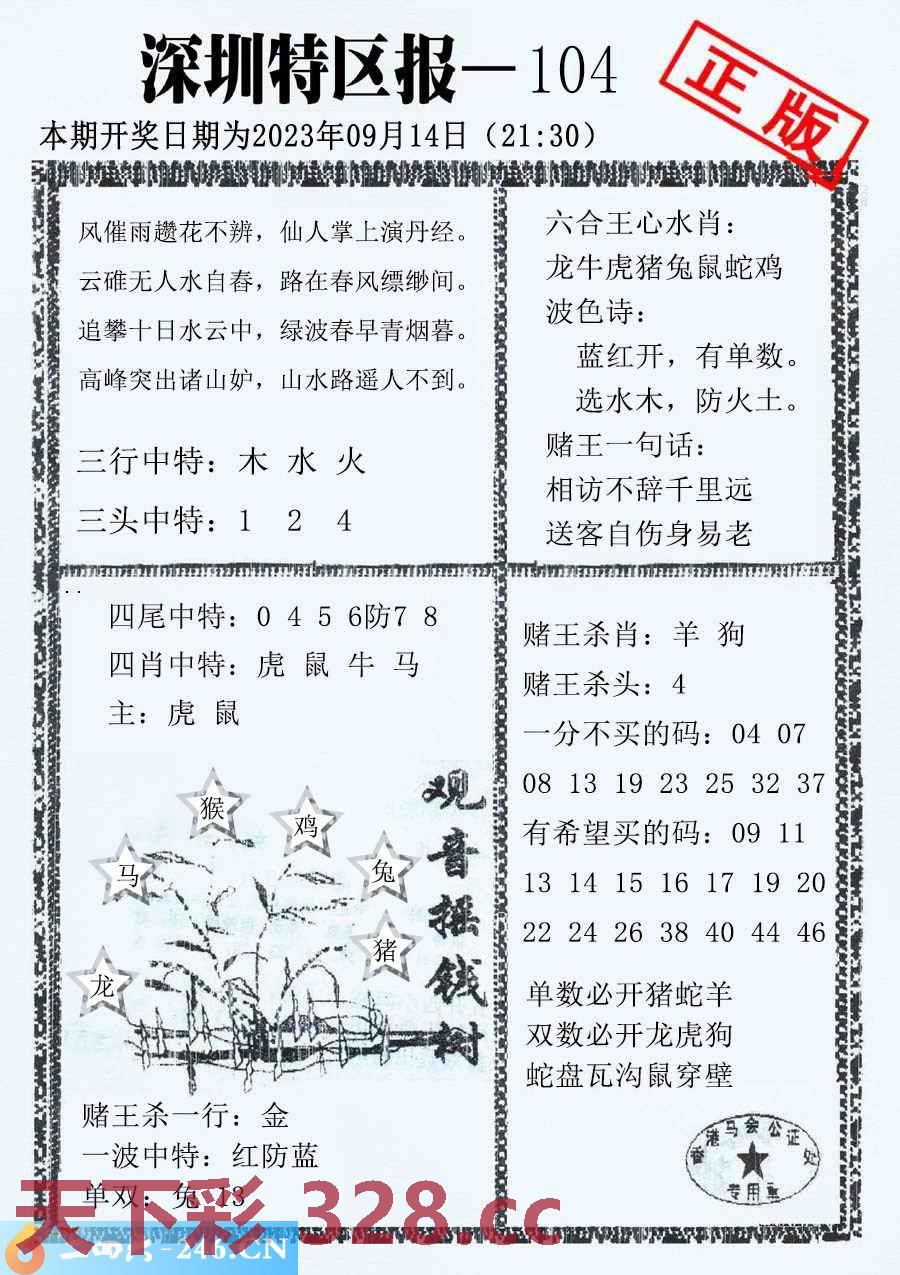 深圳特区报—104
正版
本期开奖日期为2023年09月14日（21:30）
风催雨趲花不辨，仙人掌上演丹经。
云碓无人水自舂，路在春风缥缈间。
追攀十日水云中，绿波春早青烟暮。
高峰突出诸山妒，山水路遥人不到。
三行中特：木 水 火
三头中特：1 2 4
六合王心水肖：
龙牛虎猪兔鼠蛇鸡
波色诗：
蓝红开，有单数。
选水木，防火土。
赌王一句话：
相访不辞千里远
送客自伤身易老
四尾中特：0 4 5 6防7 8
四肖中特：虎 鼠 牛 马
主：虎 鼠
猴
鸡
马
兔
猪
龙
观音摇钱树
赌王杀一行：金
一波中特：红防蓝
单双：兔 13
赌王杀肖：羊 狗
赌王杀头：4
一分不买的码：04 07
08 13 19 23 25 32 37
有希望买的码：09 11
13 14 15 16 17 19 20
22 24 26 38 40 44 46
单数必开猪蛇羊
双数必开龙虎狗
蛇盘瓦沟鼠穿壁
香港马会公证处
专用章
天下彩 328.cc
-246.CN